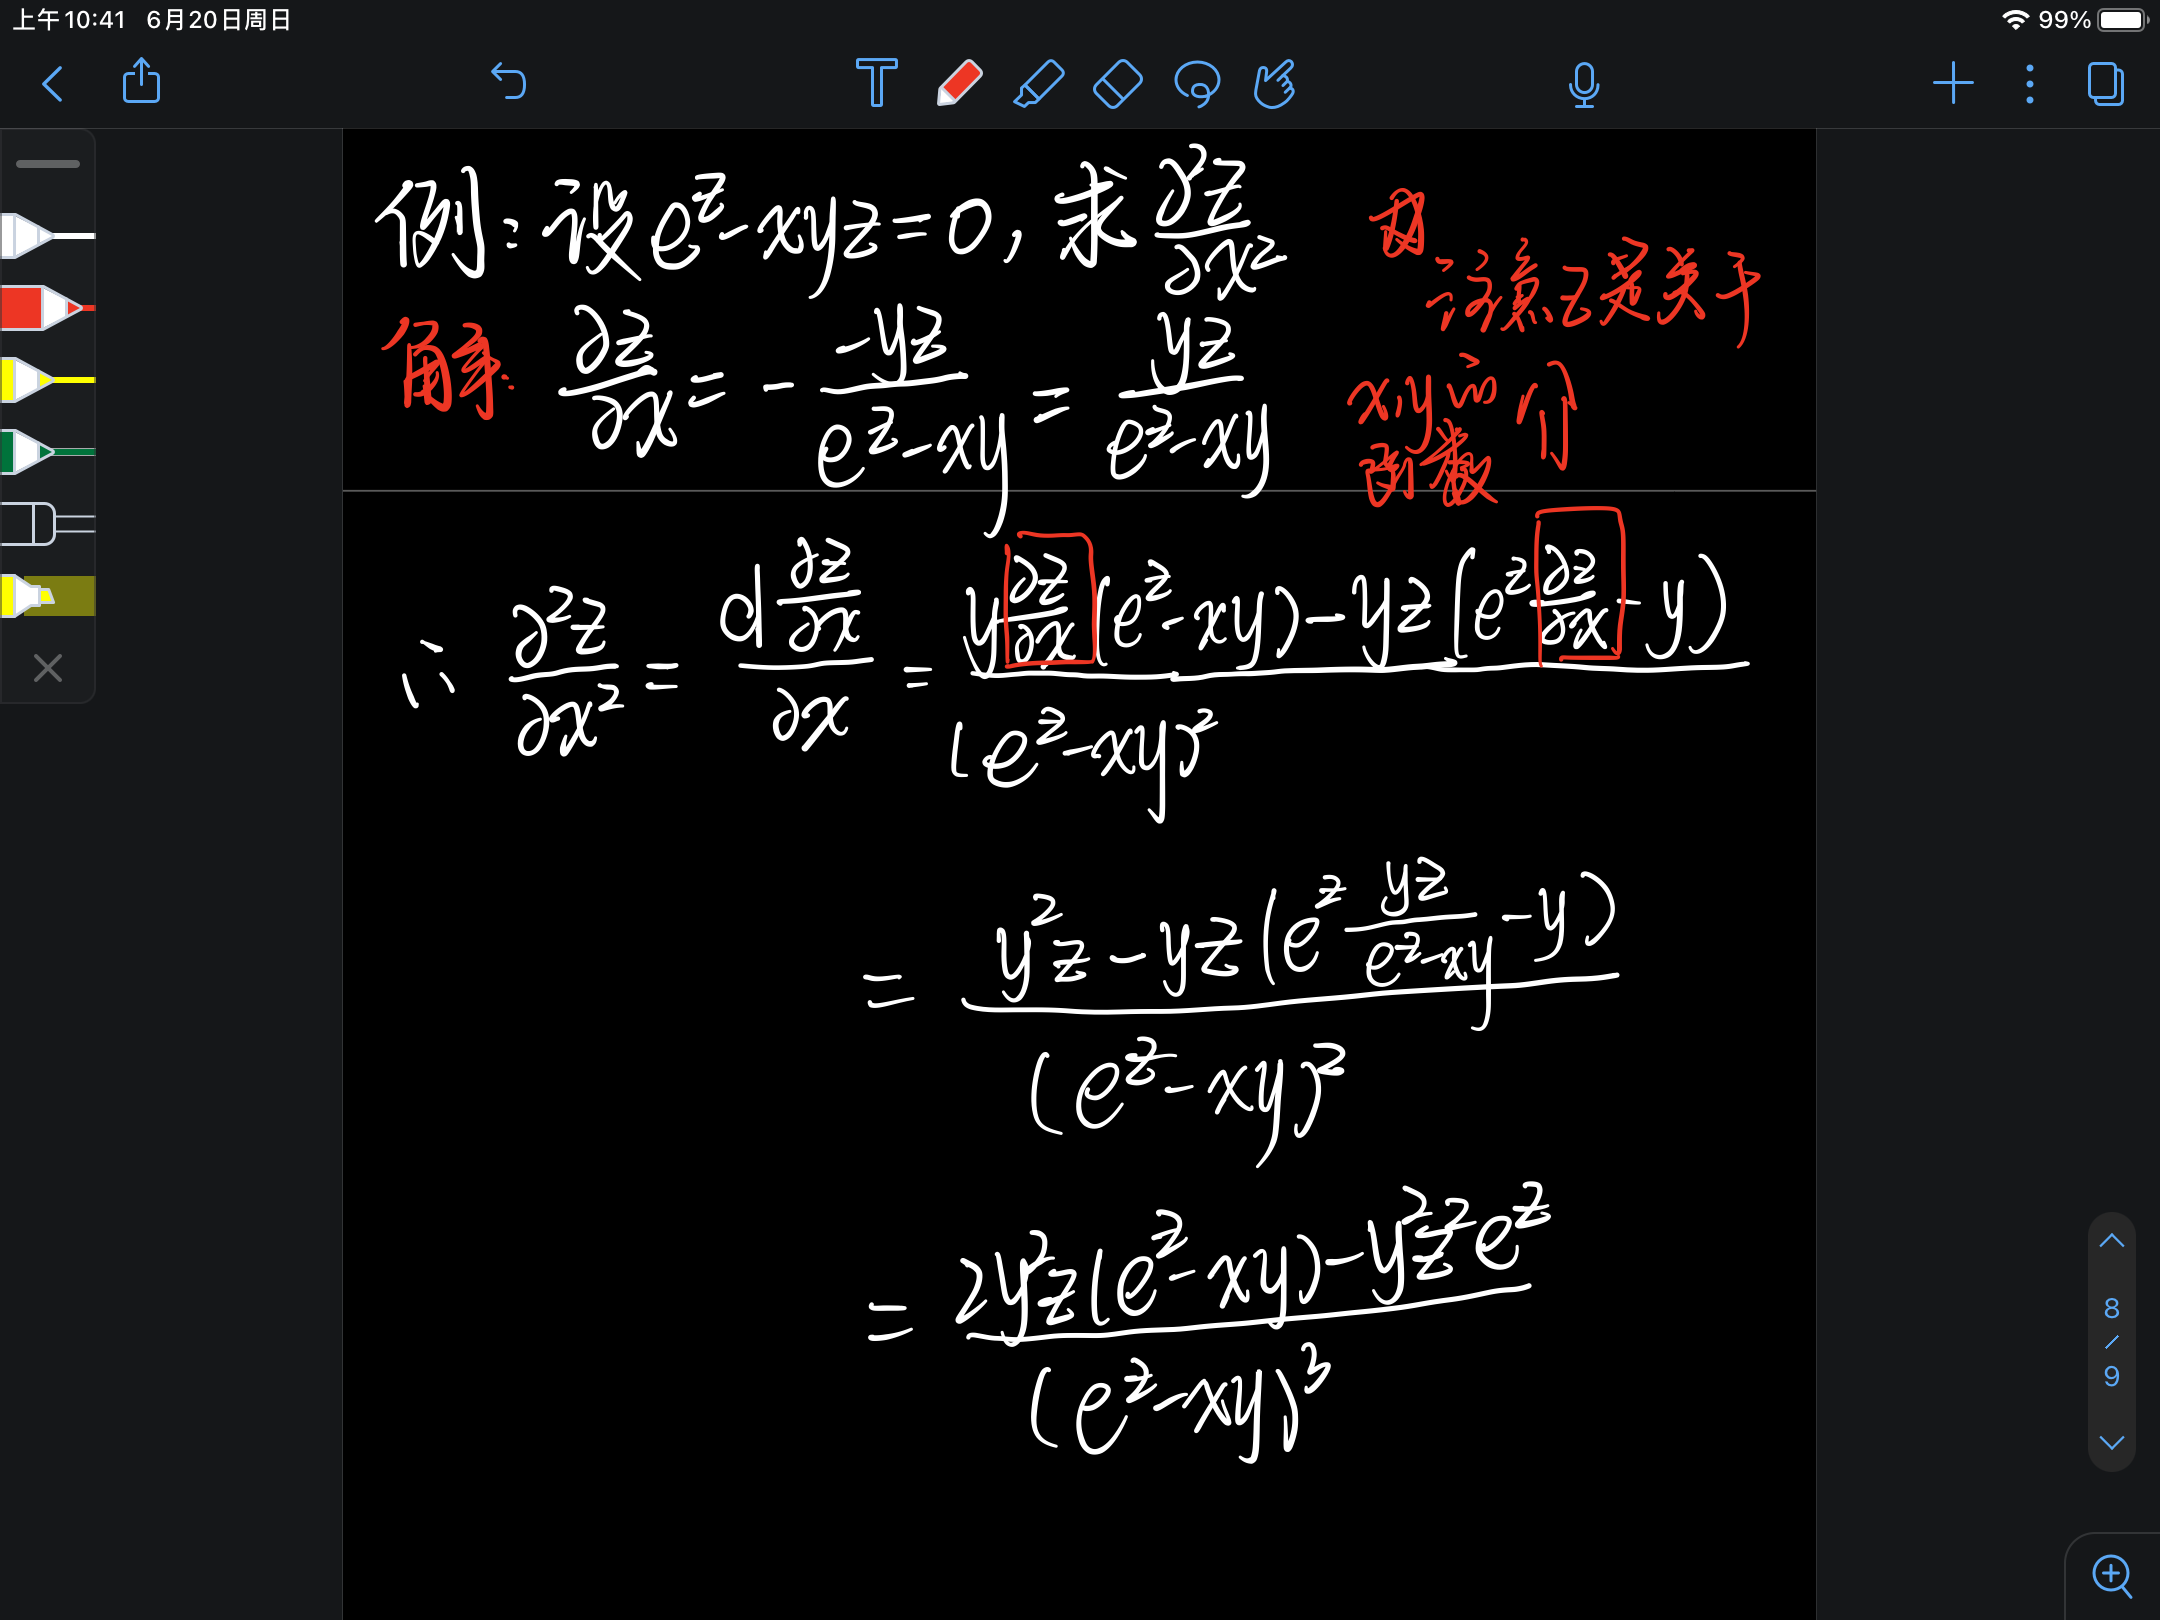 上午10:41 6月20日周日
99%
T
例:设e^z-xyz=0,求∂²z/∂x²
解: ∂z/∂x = - -yz/(e^z-xy) = yz/(e^z-xy)
z是关于
x,y的
函数
∴ ∂²z/∂x² = d ∂z/∂x / ∂x = [y ∂z/∂x (e^z-xy)-yz(e^z ∂z/∂x - y)]/(e^z-xy)²
= [y²z-yz(e^z yz/(e^z-xy) -y)]/(e^z-xy)²
= [2y²z(e^z-xy)-y²z²e^z]/(e^z-xy)³
8
/
9